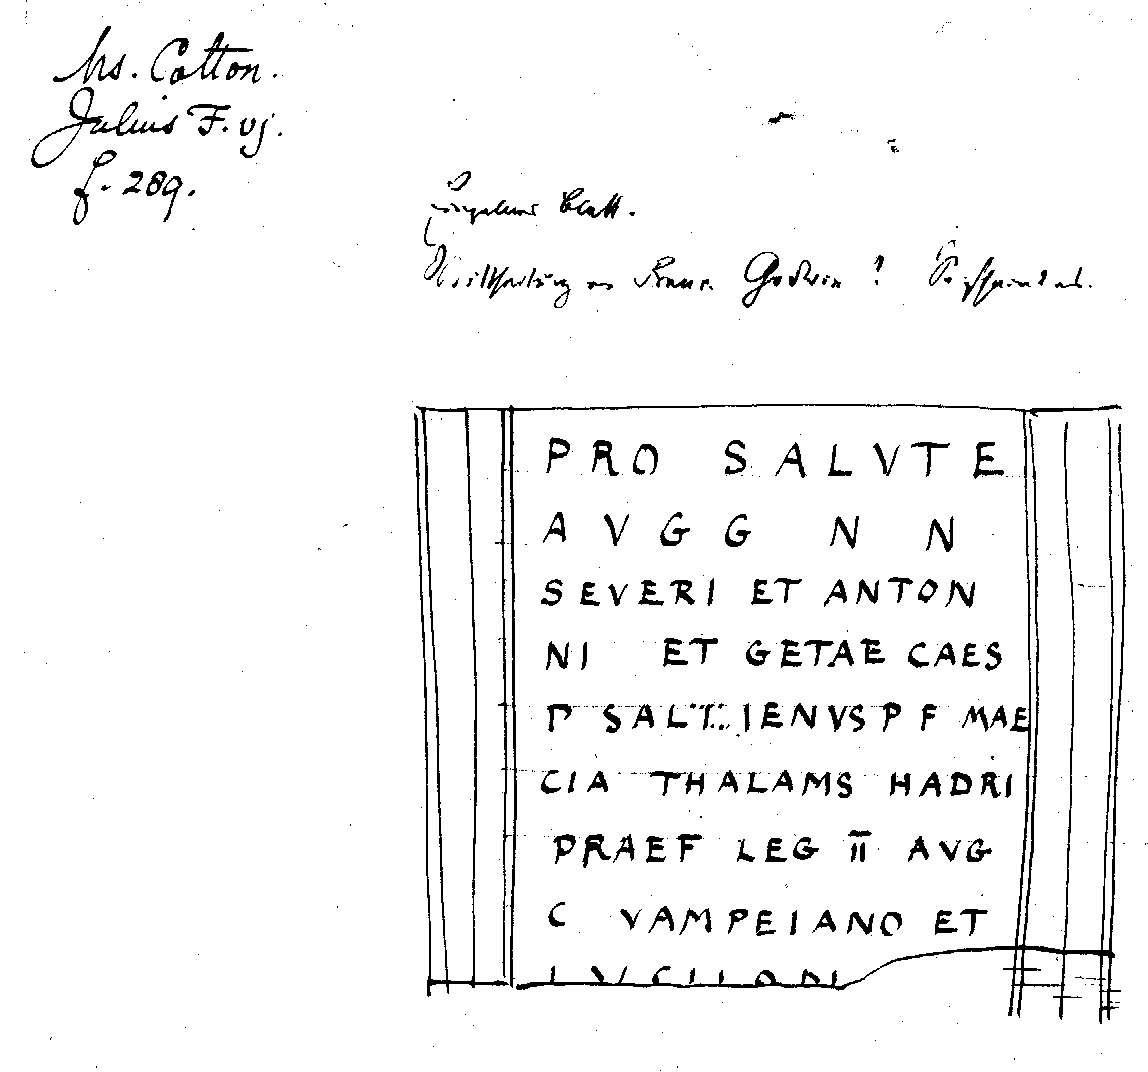 Ms. Cotton.
Julius F. vj.
f. 289.
Blatt.
PRO SALVTE
AVGG NN
SEVERI ET ANTON
NI ET GETAE CAES
P SALT IENVS P F MAE
CIA THALAMS HADRI
PRAEF LEG II AVG
C VAMPEIANO ET
LVCILIONI